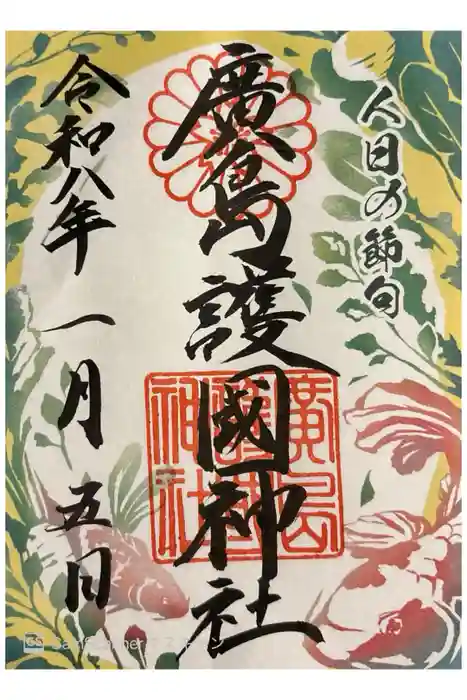 人日の節句
廣島護國神社
廣島護國神社
令和八年 一月 五日